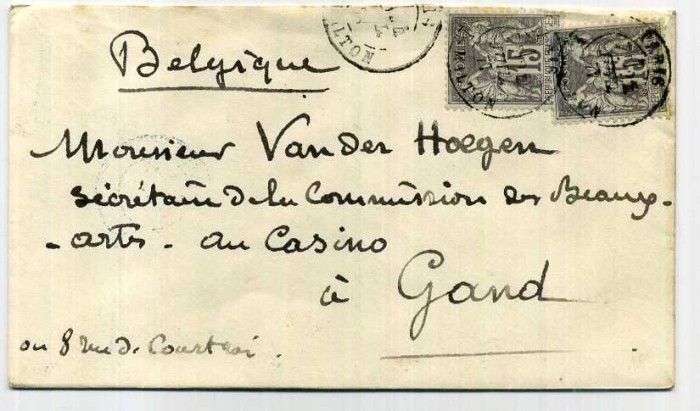 Belgique
Monsieur Van der Haegen
Secrétaire de la Commission des Beaux-
-arts - au Casino
à Gand
ou 8 rue de Courtrai.
15
PARIS
MILTON